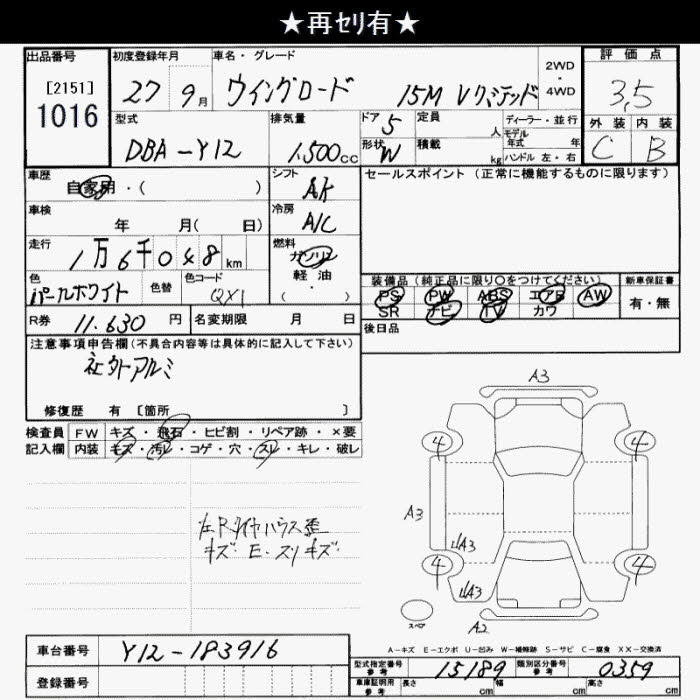 ★再セリ有★
出品番号
[2151]
1016
初度登録年月
27 9月
車名・グレード
ウイングロード 15M Vリミテッド
2WD
・
4WD
評価点
3,5
外装 内装
C B
型式
DBA-Y12
排気量
1,500cc
ドア
5
形状
W
定員
人
積載
kg
ディーラー・並行
モデル年式 年
ハンドル 左・右
車歴
自家用・( )
シフト
AK
車検
年 月( 日)
冷房
A/C
走行
1万6千048km
燃料
ガソリン
軽・油
・
( )
色
パールホワイト
色替
色コード
QX1
R券
11.630円
名変期限 月 日
セールスポイント(正常に機能するものに限ります)
装備品(純正品に限り○をつけてください)
PS PW ABS エアB AW
SR ナビ TV カワ
新車保証書
有・無
後日品
注意事項申告欄(不具合内容等は具体的に記入して下さい)
社外アルミ
修復歴 有 [箇所 ]
検査員
記入欄
FW キズ・飛石・ヒビ割・リペア跡・×要
内装 キズ・汚レ・コゲ・穴・スレ・キレ・破レ
左Rタイヤハウス歪
キズ E・スリキズ
A3
4
4
A3
UA3
4
4
UA3
スペア
A2
A-キズ E-エクボ U-凹み W-補修跡 S-サビ C-腐食 XX-交換済
車台番号
Y12-183916
登録番号
型式指定番号
参考
15189
類別区分番号
参考
0359
車庫証明用
参考
長さ cm
幅 cm
高さ cm